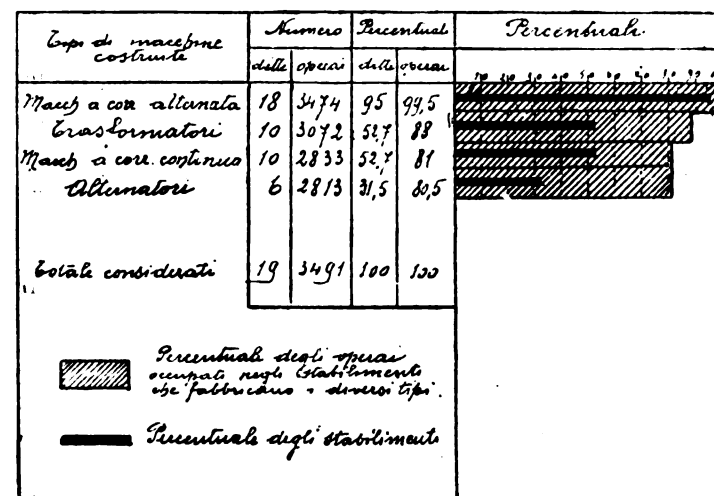 Tipi di macchine costruite
Numero Percentuali Percentuali
ditte operai ditte operai
Macch a corr alternata 18 3474 95 99,5
Trasformatori 10 3072 52,7 88
Macch a corr. continua 10 2833 52,7 81
Alternatori 6 2813 31,5 80,5
Totale considerati 19 3491 100 100
Percentuali degli operai
occupati negli stabilimenti
che fabbricano i diversi tipi.
Percentuale degli stabilimenti